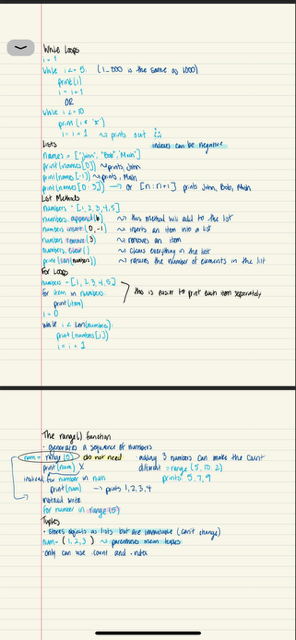 While Loops
i = 1
while i <= 5: (1_000 is the same as 1000)
print(i)
i = i + 1
OR
while i <= 10
print(i * '*')
i = i + 1 → prints out
Lists
indexes can be negative
names = ["John", "Bob", "Mosh"]
print(names[0]) → prints John
print(names[-1]) → prints Mosh
print(names[0:3]) → or [n:n+1] prints John, Bob, Mosh
List Methods
numbers = [1,2,3,4,5]
numbers.append(6) → this method will add to the list
numbers.insert(0,-1) → inserts an item into a list
numbers.remove(3) → removes an item
numbers.clear() → clears everything in the list
print(len(numbers)) → returns the number of elements in the list
For Loops
numbers = [1,2,3,4,5]
for item in numbers:
this is easier to print each item separately
print(item)
i = 0
while i < len(numbers):
print(numbers[i])
i = i + 1
The range() function
- generates a sequence of numbers
num = range(5) do not need
adding 3 numbers can make the count
print(num) X
different = range(5, 10, 2)
instead, for number in num
prints 5,7,9
print(num) → prints 1,2,3,4
instead write
for number in range(5)
Tuples
- stores objects as lists but are immutable (can't change)
num = (1,2,3) → parentheses mean tuples
- only can use count and index